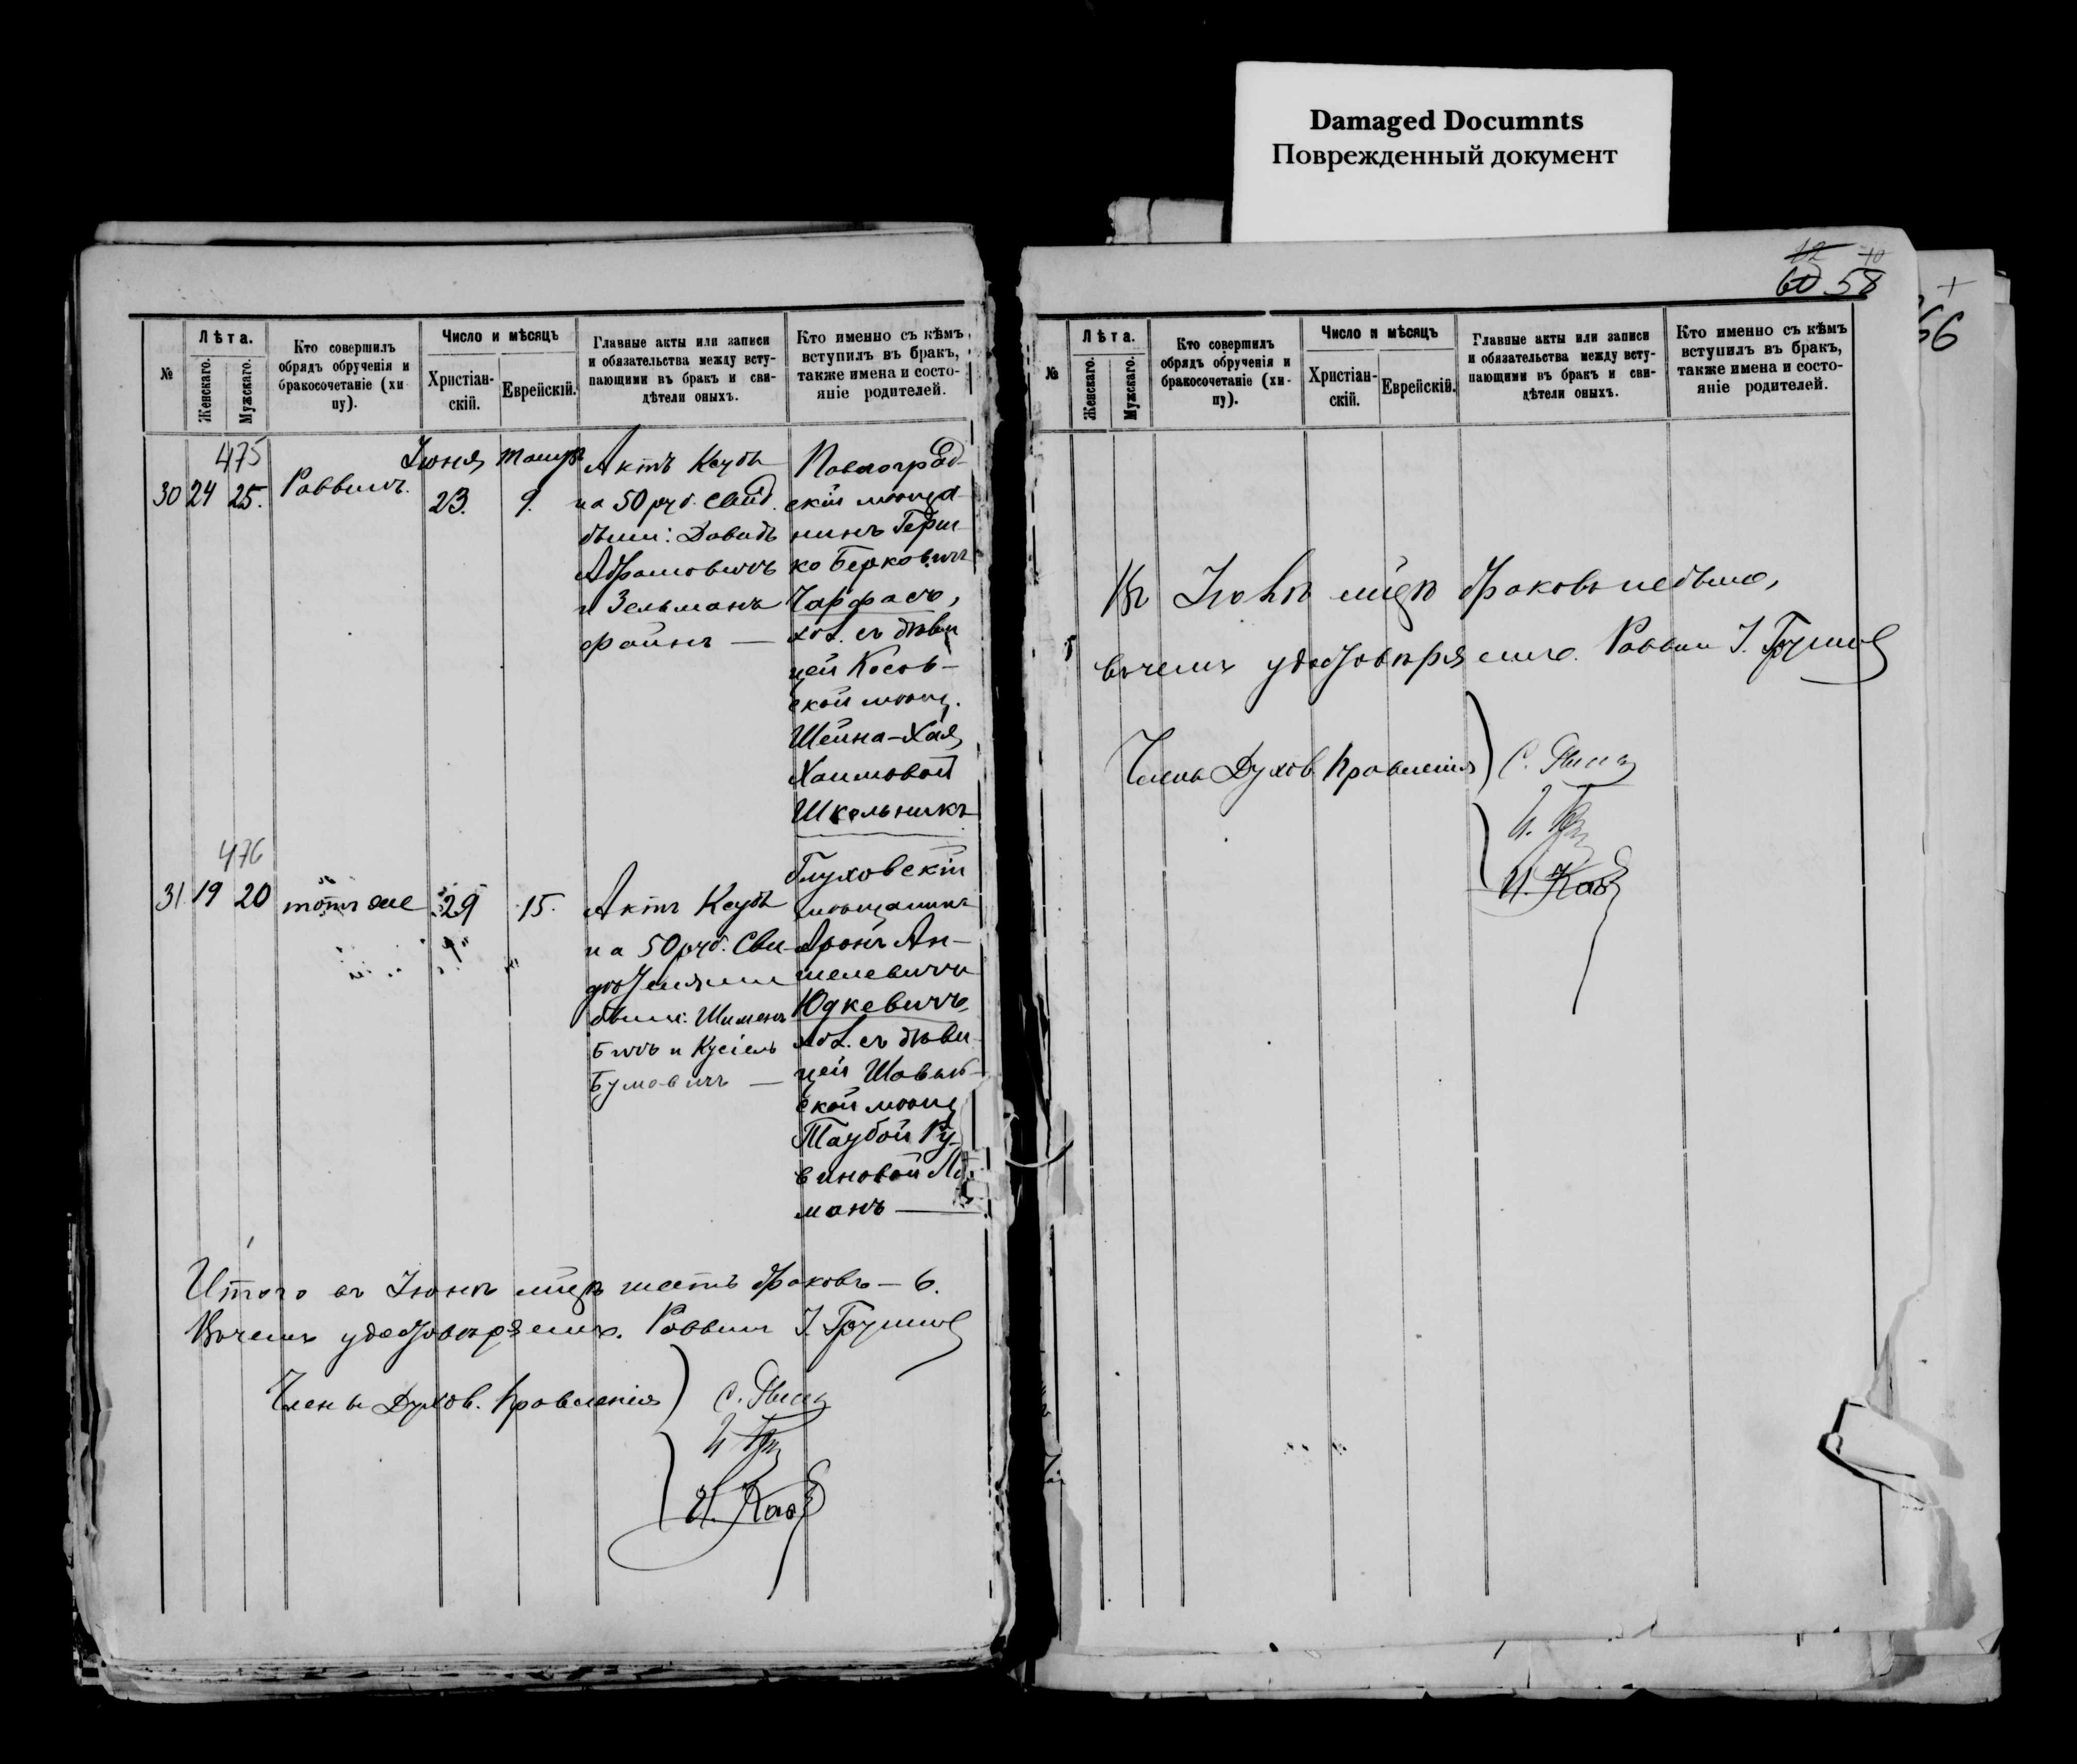 Damaged Documnts
Поврежденный документ
№
Лѣта.
Женскаго.
Мужскаго.
Кто совершилъ
обрядъ обрученія и
бракосочетаніе (хи-
пу).
Число и мѣсяцъ
Христіан-
скій.
Еврейскій.
Главные акты или записи
и обязательства между всту-
пающими въ бракъ и сви-
дѣтели оныхъ.
Кто именно съ кѣмъ
вступилъ въ бракъ,
также имена и состо-
яніе родителей.
475
30 24 25.
Раввинъ.
Іюня
23.
9.
Актъ Ксубы
на 50 руб. Свид.
были: Давидъ
Абрамовичъ
и Зельманъ
Файнъ —
Павлоград-
скій мѣща-
нинъ Герш-
ко Берковичъ
Чарфасъ,
хол. съ дѣви
цей Косов-
ской мѣщ.
Шейна-Хая
Хаимовой
Школьникъ
476
31 19 20
тотъ же
29
15.
Актъ Ксубы
на 50 руб. Сви-
были: Шименъ
и Кусіель
Глуховскій
мѣщанинъ
Аронъ Ан-
шелевичъ
Юдкевичъ,
хол. съ дѣви-
цей Шавель-
ской мѣщ
Таубой Ру-
виновой
манъ —
Итого въ Іюнѣ мцѣ шесть браковъ — 6.
Въ чемъ удостовѣряемъ. Раввинъ І.
Члены Духов. Правленія
С.
И.
И.
12 10
60 58
66
№
Лѣта.
Женскаго.
Мужскаго.
Кто совершилъ
обрядъ обрученія и
бракосочетаніе (хи-
пу).
Число и мѣсяцъ
Христіан-
скій.
Еврейскій.
Главные акты или записи
и обязательства между всту-
пающими въ бракъ и сви-
дѣтели оныхъ.
Кто именно съ кѣмъ
вступилъ въ бракъ,
также имена и состо-
яніе родителей.
Въ Іюлѣ мцѣ браковъ небыло,
въ чемъ удостовѣряемъ. Раввинъ І.
Члены Духов. Правленія
С.
И.
И.